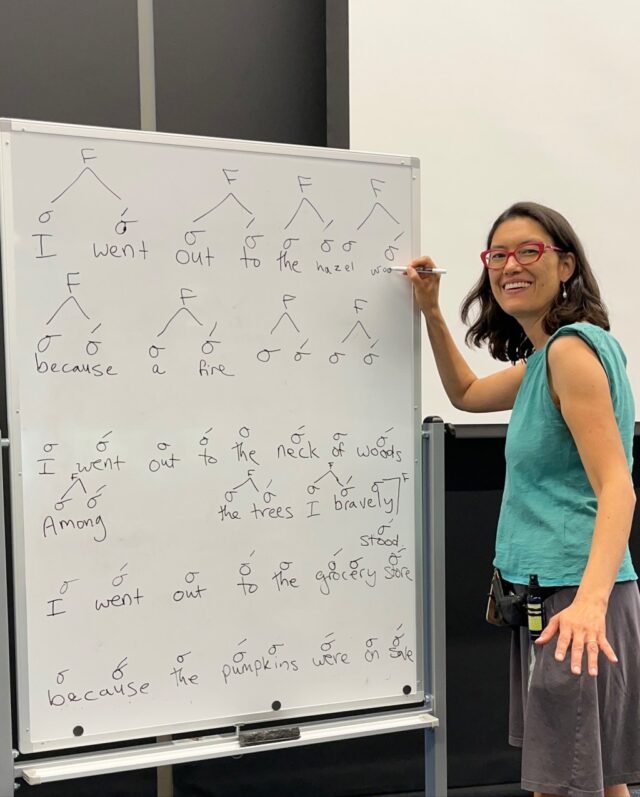 F F F F
σ σ́ σ σ́ σ σ́ σ σ́
I went out to the hazel
F F F F
σ σ́ σ σ́ σ σ́ σ σ́
because a fire
σ σ́ σ σ́ σ σ́ σ σ́
I went out to the neck of woods
F F F F
σ σ́ σ σ́ σ σ́ σ
Among the trees I bravely
σ́
stood.
σ σ́ σ σ́ σ σ́ σ σ́
I went out to the grocery store
σ σ́ σ σ́ σ σ́ σ σ́
because the pumpkins were on sale